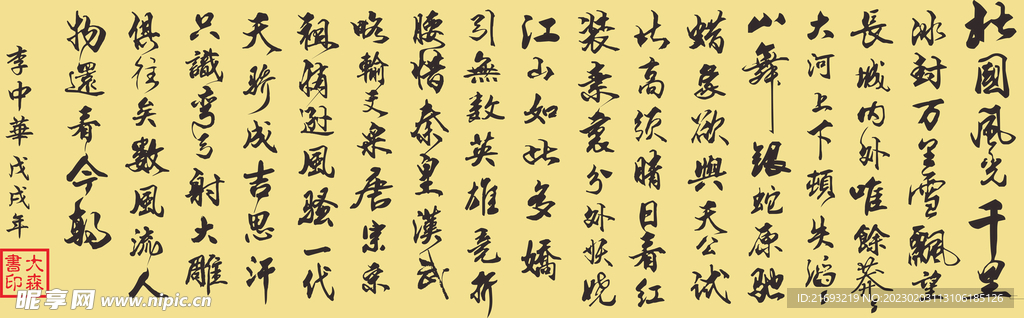 北國風光千里
冰封万里雪飄望
長城内外唯餘莽々
大河上下頓失滔々
山舞銀蛇原馳
蜡象欲與天公試
比高须晴日看红
裝素裹分外妖娆
江山如此多嬌
引無数英雄竞折
腰惜秦皇漢武
略輸文采唐宗宋
祖稍遜風騷一代
天骄成吉思汗
只識彎弓射大雕
俱往矣數風流人
物還看今朝
李中華戊戌年
大森書印
昵享网 www.nipic.cn
ID:21693219 NO:20230203113106185126